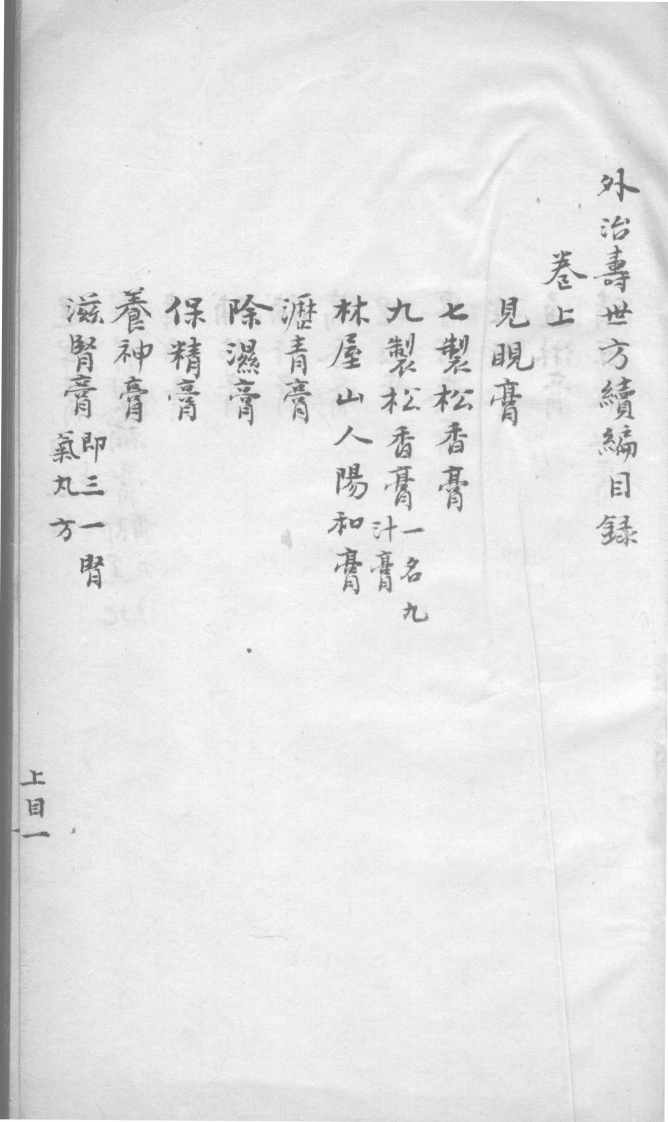 外治壽世方續編目録
卷上
見睍膏
七製松香膏
九製松香膏一名九汁膏
林屋山人陽和膏
瀝青膏
除濕膏
保精膏
養神膏
滋腎膏即三一腎氣丸方
上目一